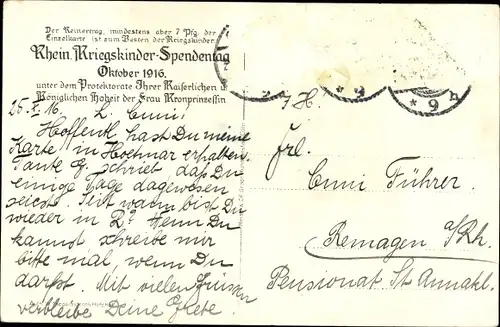 Der Reinertrag, mindestens aber 7 Pfg. der
Einzelkarte ist zum Besten der Kriegskinder
Rhein. Kriegskinder-Spendentag
Oktober 1916.
unter dem Protektorate Ihrer Kaiserlichen u.
Königlichen Hoheit der Frau Kronprinzessin
25. X. 16. L. Cuni!
Hoffentl. hast Du meine
Karte in Hoetmar erhalten.
Tante G. schrieb, daß Du
einige Tage dagewesen
seiest. Seit wann bist Du
wieder in R? Wenn Du
kannst schreibe mir
bitte mal, wenn Du
darfst. Mit vielen Grüssen
verbleibe Deine Grete.
Frl.
Cuni Führer
Remagen a/Rh.
Pensionat St. Annakl.
* 9
* 9